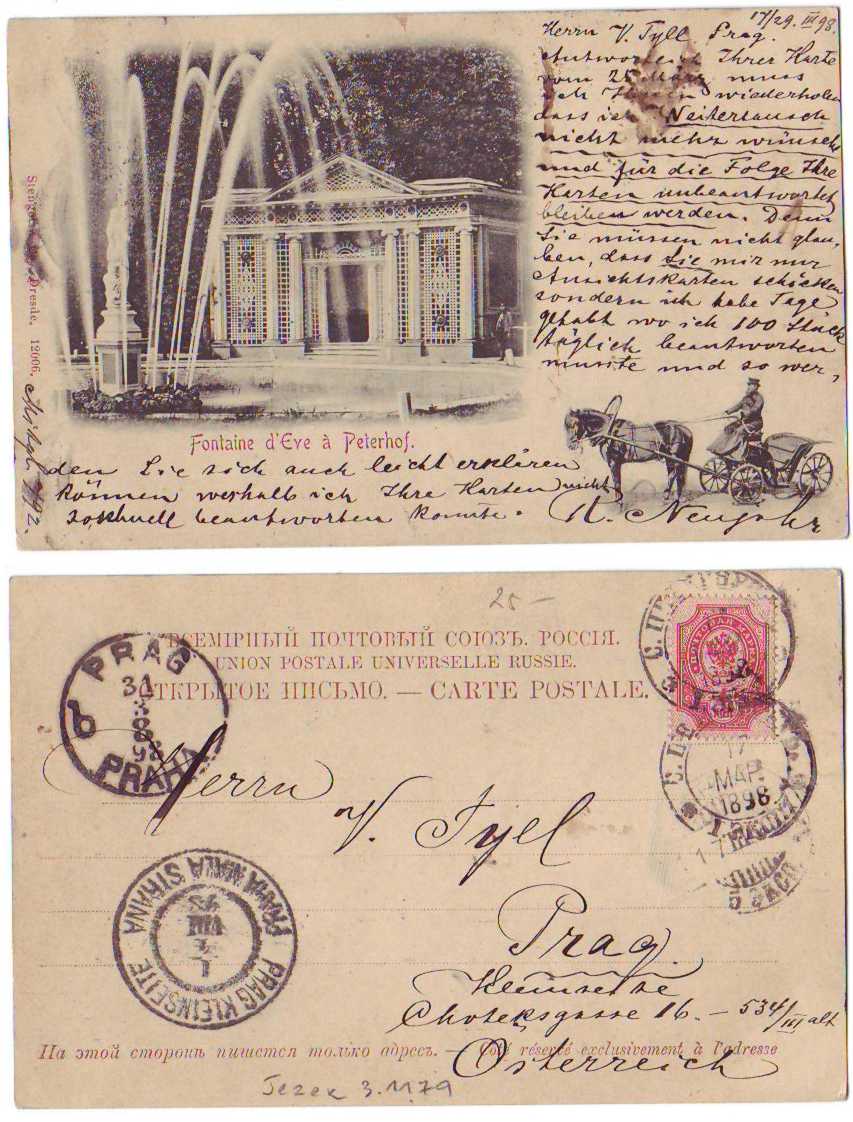 17/29. III 98.
Herrn V. Tyll Prag.
Antwortlich Ihrer Karte
vom 25 März muss
ich Ihnen wiederholen
dass ich Weitertausch
nicht mehr wünsche
und für die Folge Ihre
Karten unbeantwortet
bleiben werden. Denn
Sie müssen nicht glau-
ben, dass Sie mir nur
Ansichtskarten schicken
sondern ich habe Tage
gehabt wo ich 100 Stück
täglich beantworten
musste und so wer,
den Sie sich auch leicht erklären
können weshalb ich Ihre Karten nicht
so schnell beantworten konnte.
Fontaine d'Eve à Peterhof.
Dresde. 12006.
25-
ВСЕМІРНЫЙ ПОЧТОВЫЙ СОЮЗЪ. РОССІЯ.
UNION POSTALE UNIVERSELLE RUSSIE.
ОТКРЫТОЕ ПИСЬМО. — CARTE POSTALE.
PRAG
PRAHA
17
МАР.
1898
Herrn
V. Tyll
Prag
Kleinseite
Choteksgasse 16. – 534/III alt
Österreich
PRAHA MALÁ STRANA
PRAG KLEINSEITE
На этой сторонѣ пишется только адресъ. — Côté réservé exclusivement à l'adresse
Jezek 3.1179